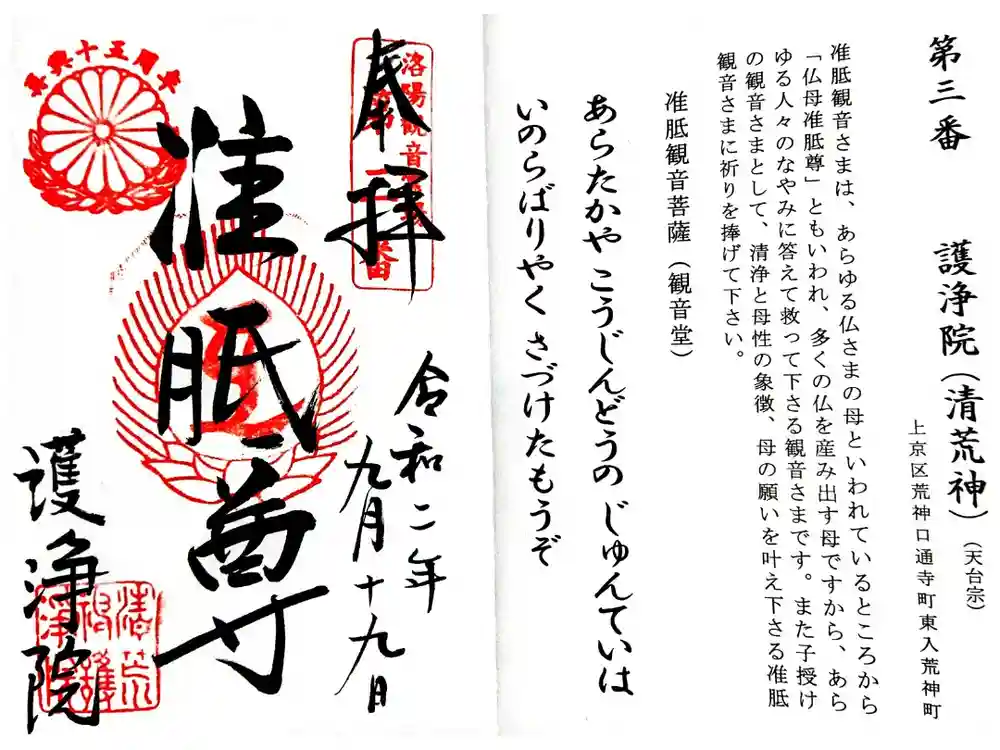 第三番 護浄院(清荒神)(天台宗)
上京区荒神口通寺町東入荒神町
准胝観音さまは、あらゆる仏さまの母といわれているところから
「仏母准胝尊」ともいわれ、多くの仏を産み出す母ですから、あら
ゆる人々のなやみに答えて救って下さる観音さまです。また子授け
の観音さまとして、清浄と母性の象徴、母の願いを叶え下さる准胝
観音さまに祈りを捧げて下さい。
准胝観音菩薩(観音堂)
あらたかや こうじんどうの じゅんていは
いのらばりやく さづけたもうぞ
奉拝
洛陽観音
令和二年
九月十九日
准胝尊
護浄院
再興十五周年